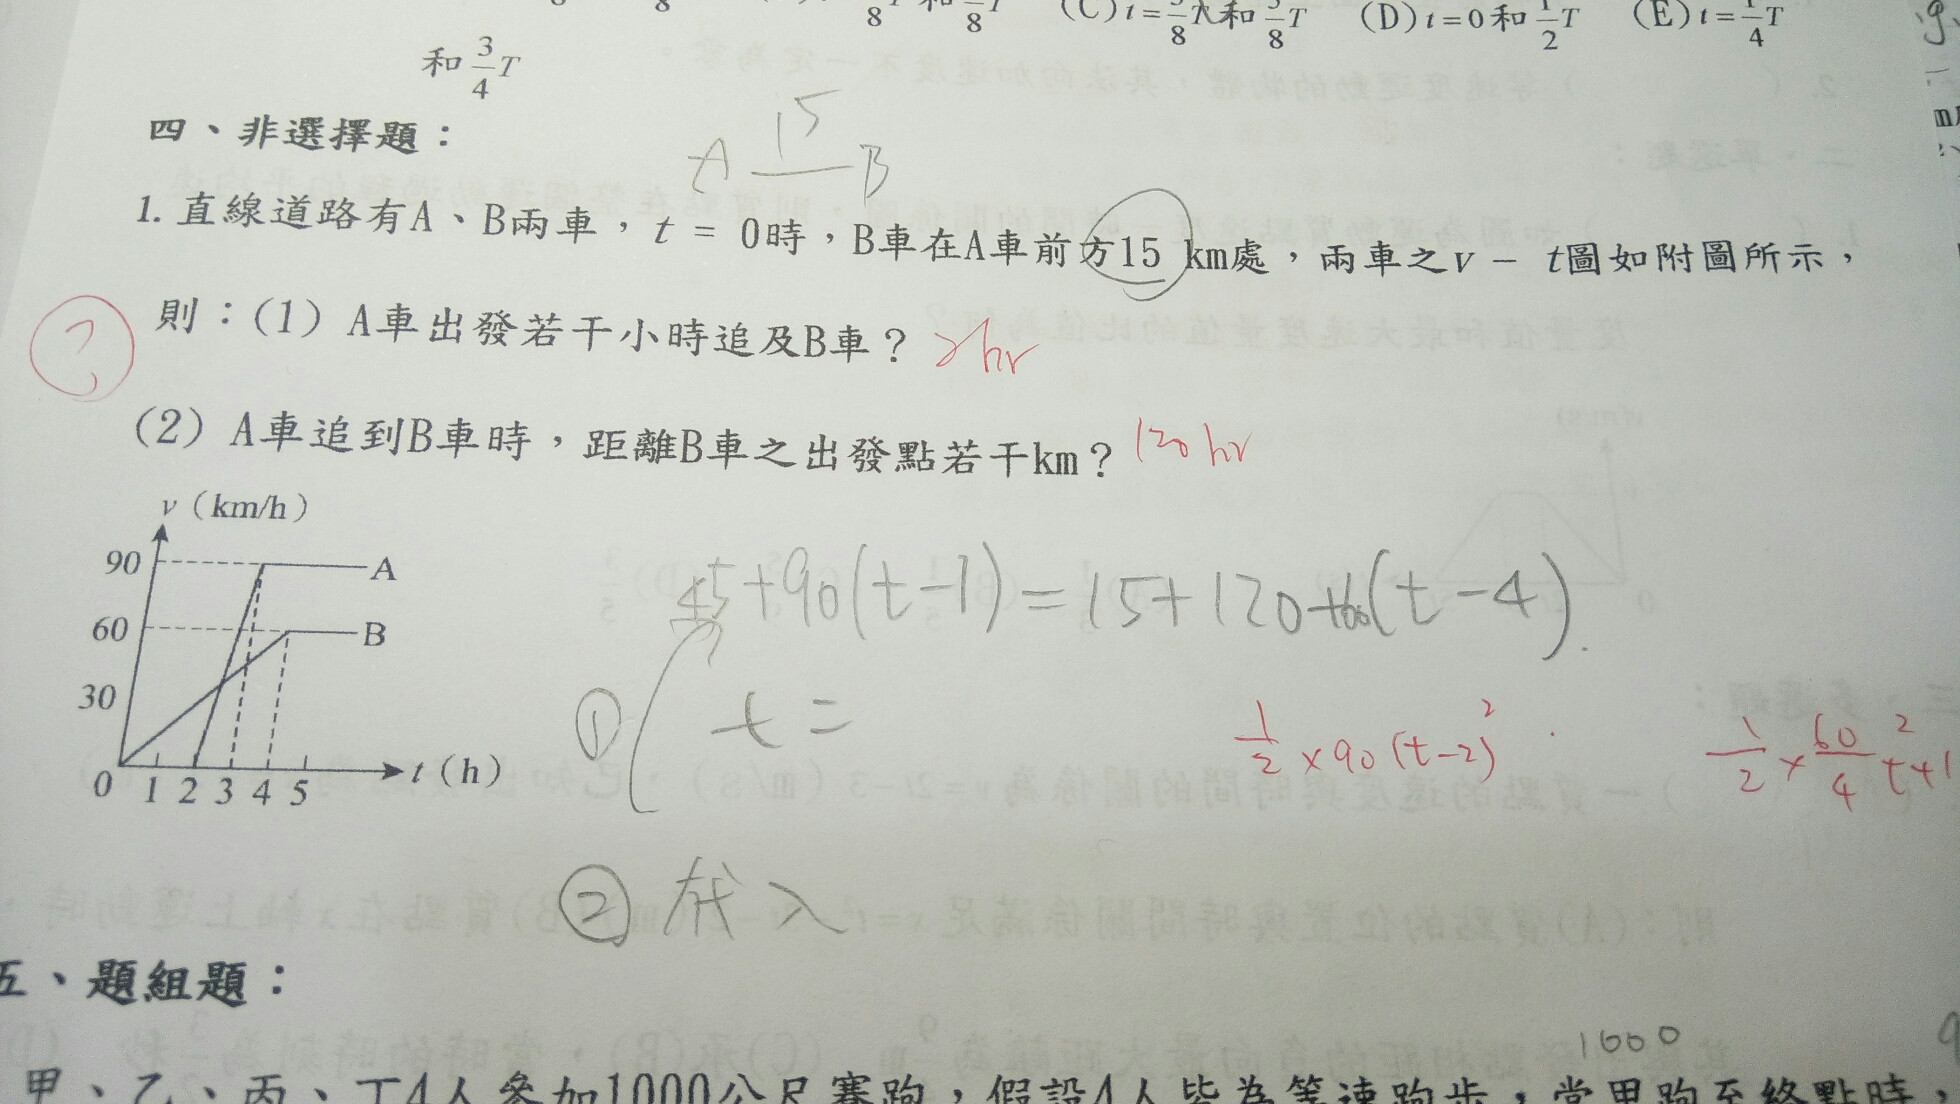 (C) t = 和 T (D) t = 0 和 1/2 T (E) t = 1/4 T
和 3/4 T
四、非選擇題：
15
A B
1. 直線道路有A、B兩車，t = 0時，B車在A車前方15 km處，兩車之v - t圖如附圖所示，
則：(1) A車出發若干小時追及B車？ 2hr
(2) A車追到B車時，距離B車之出發點若干km？ 120 hr
v (km/h)
90 A
60 B
30
0 1 2 3 4 5 t (h)
45+90(t-1)=15+120+60(t-4)
① t =
1/2 × 90 (t-2)²
1/2 × 60/4 t²+1
② 代入
五、題組題：
1000
甲、乙、丙、丁4人參加1000公尺賽跑，假設4人皆為等速跑步，當甲跑至終點時，